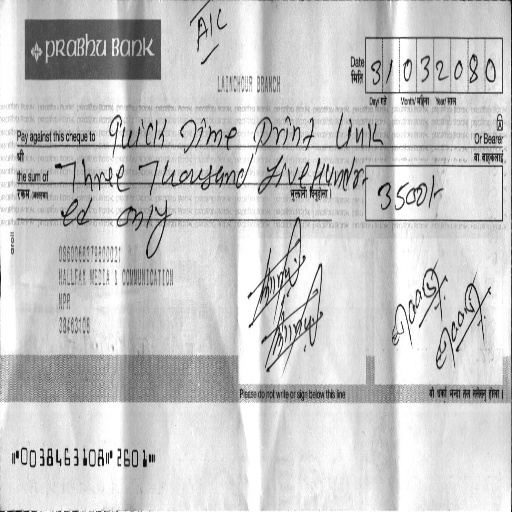 PRABHU BANK
A/C
LAINCHOUR BRANCH
Date
मिति
31032080
Day/गते Month/महिना Year/साल
Pay against this cheque to Quick Time Print Link Or Bearer
श्री वा वाहकलाई
the sum of Three Thousand Five Hundr-
रकम (अक्षरमा)
3500/-
ed only
HALLFAX MEDIA & COMMUNICATION
NPR
38463108
Please do not write or sign below this line
⑈0038463108⑈ 2601⑈